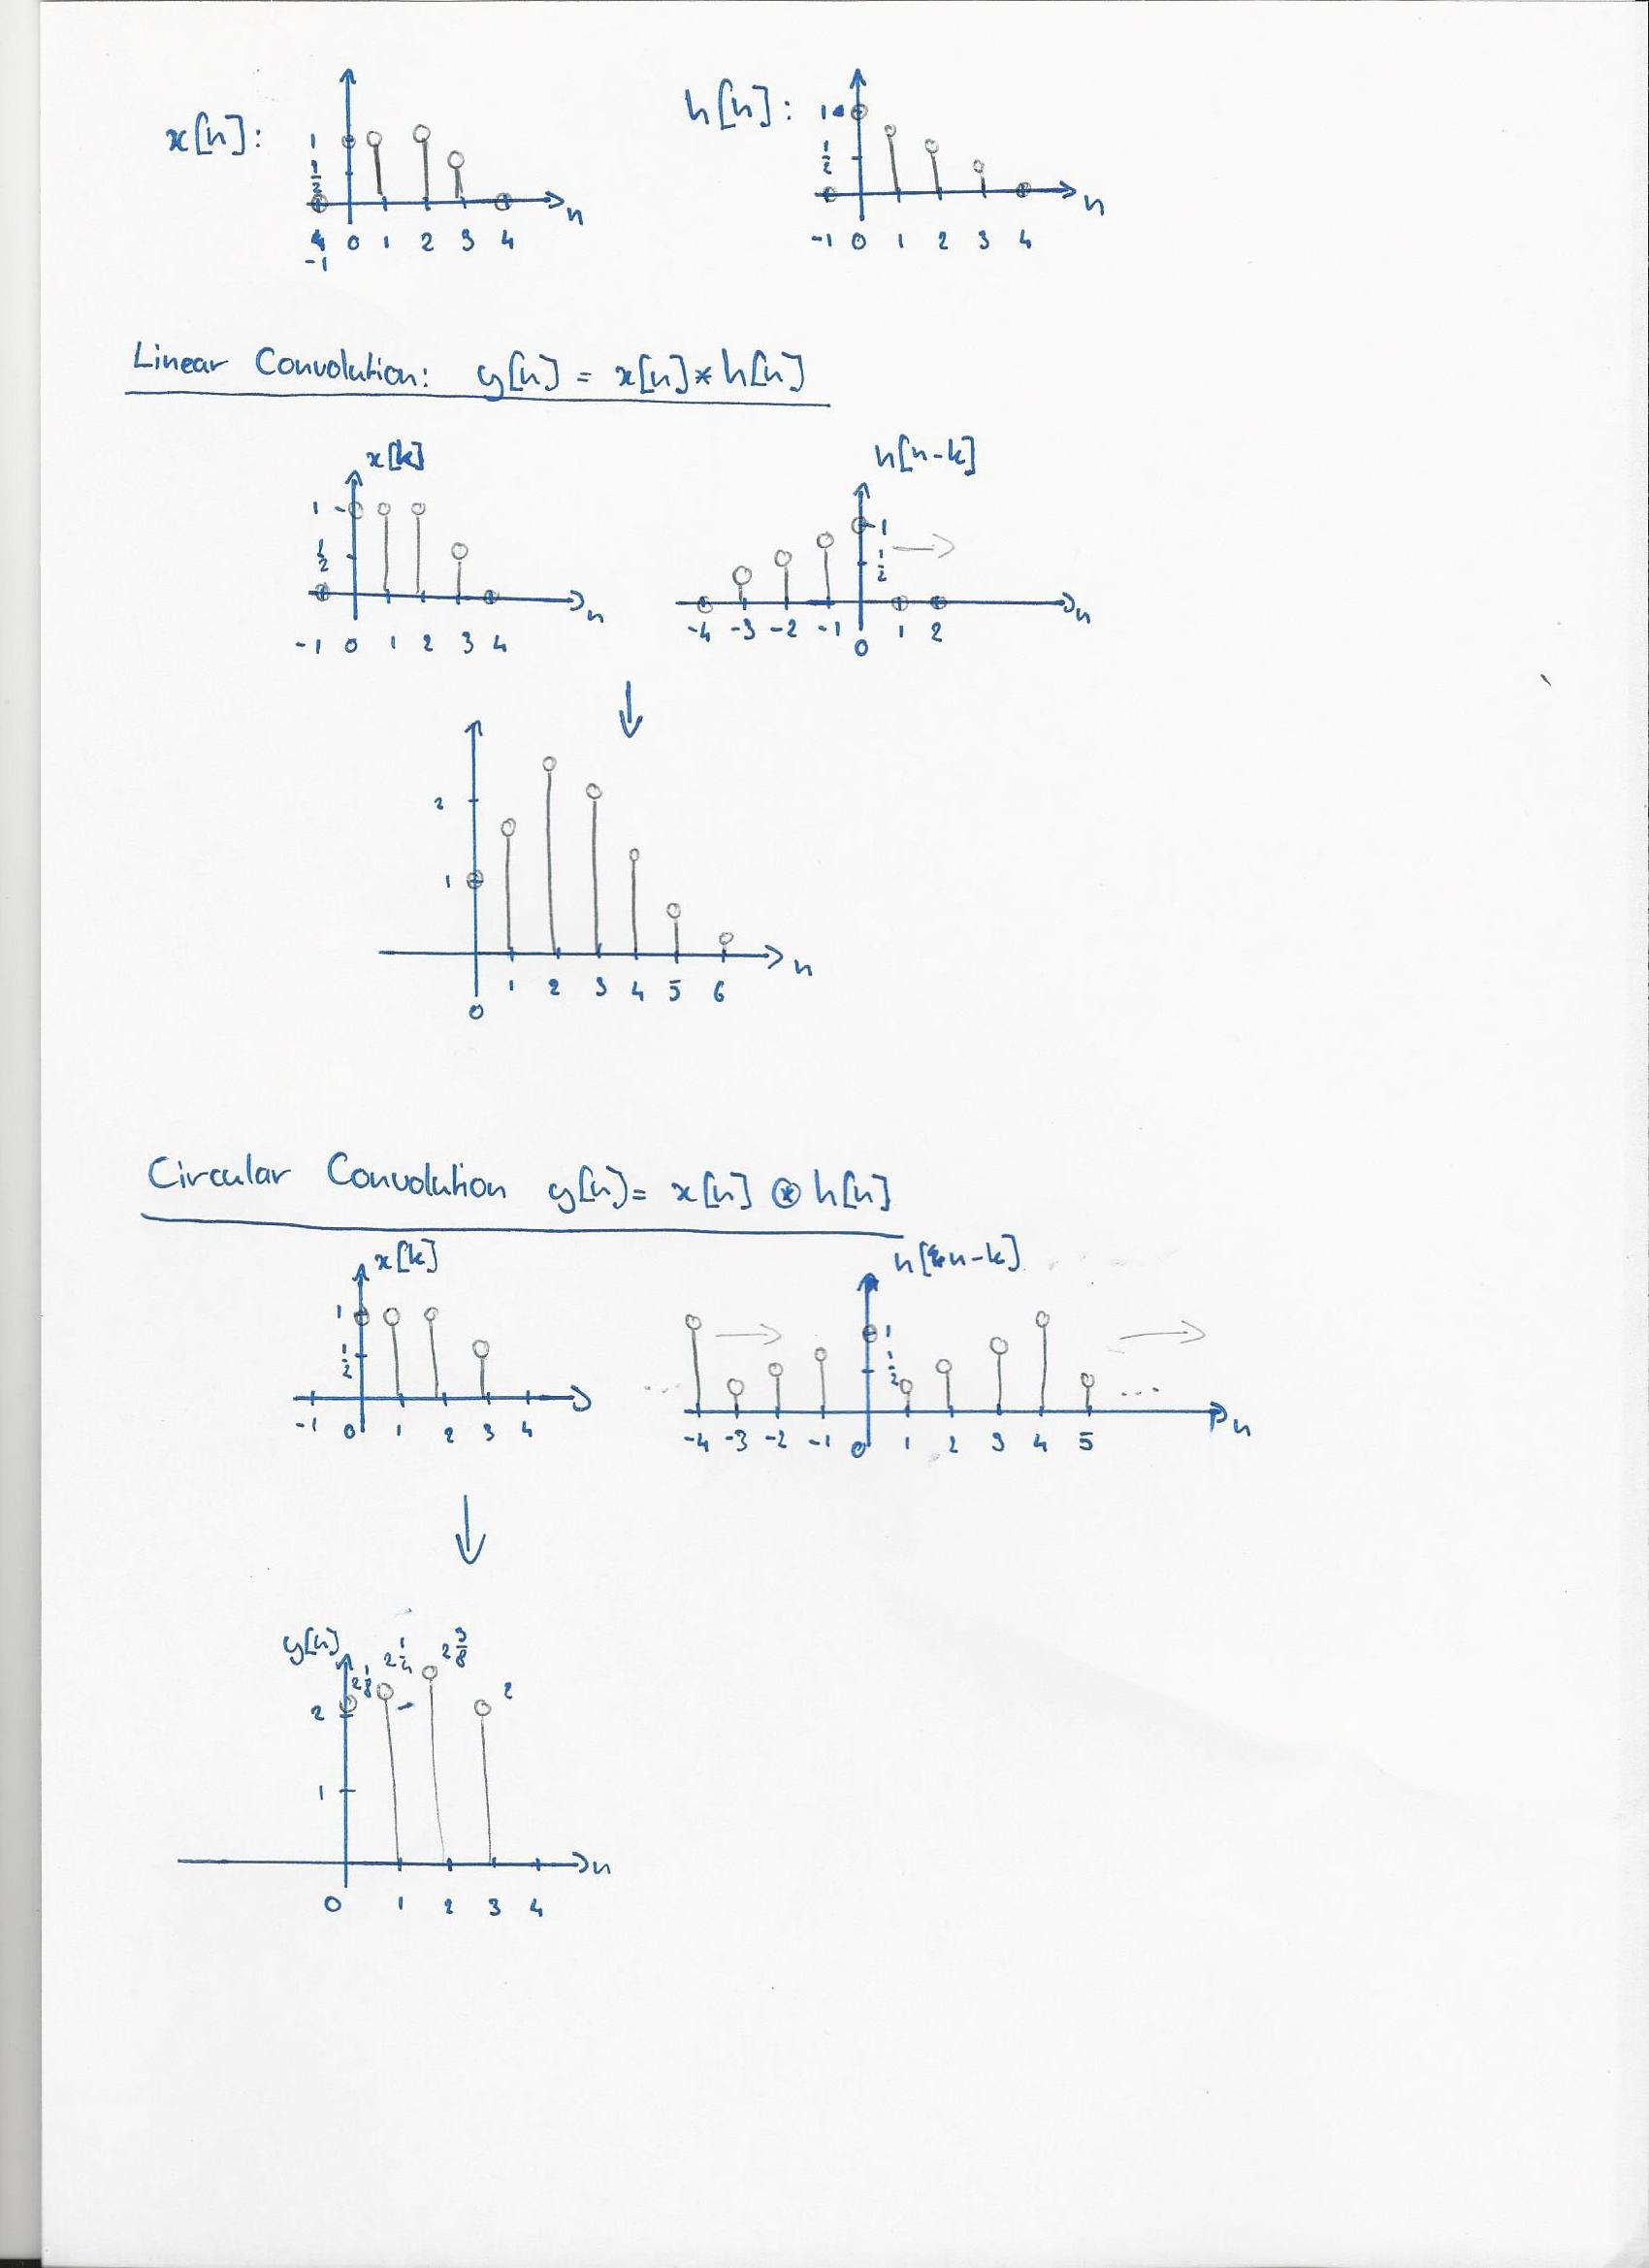 x[n]: 1 1/2 n
-1 0 1 2 3 4
h[n]: 1 1/2 n
-1 0 1 2 3 4
Linear Convolution: y[n] = x[n] * h[n]
x[k]
1 1/2 n
-1 0 1 2 3 4
h[n-k]
1 1/2 n
-4 -3 -2 -1 0 1 2
2
1
n
0 1 2 3 4 5 6
Circular Convolution y[n] = x[n] ⊛ h[n]
x[k]
1 1/2
-1 0 1 2 3 4
h[n-k]
... 1 1/2 ...
n
-4 -3 -2 -1 0 1 2 3 4 5
y[n]
2 1/8 2 1/4 2 3/8 2
2
1
n
0 1 2 3 4